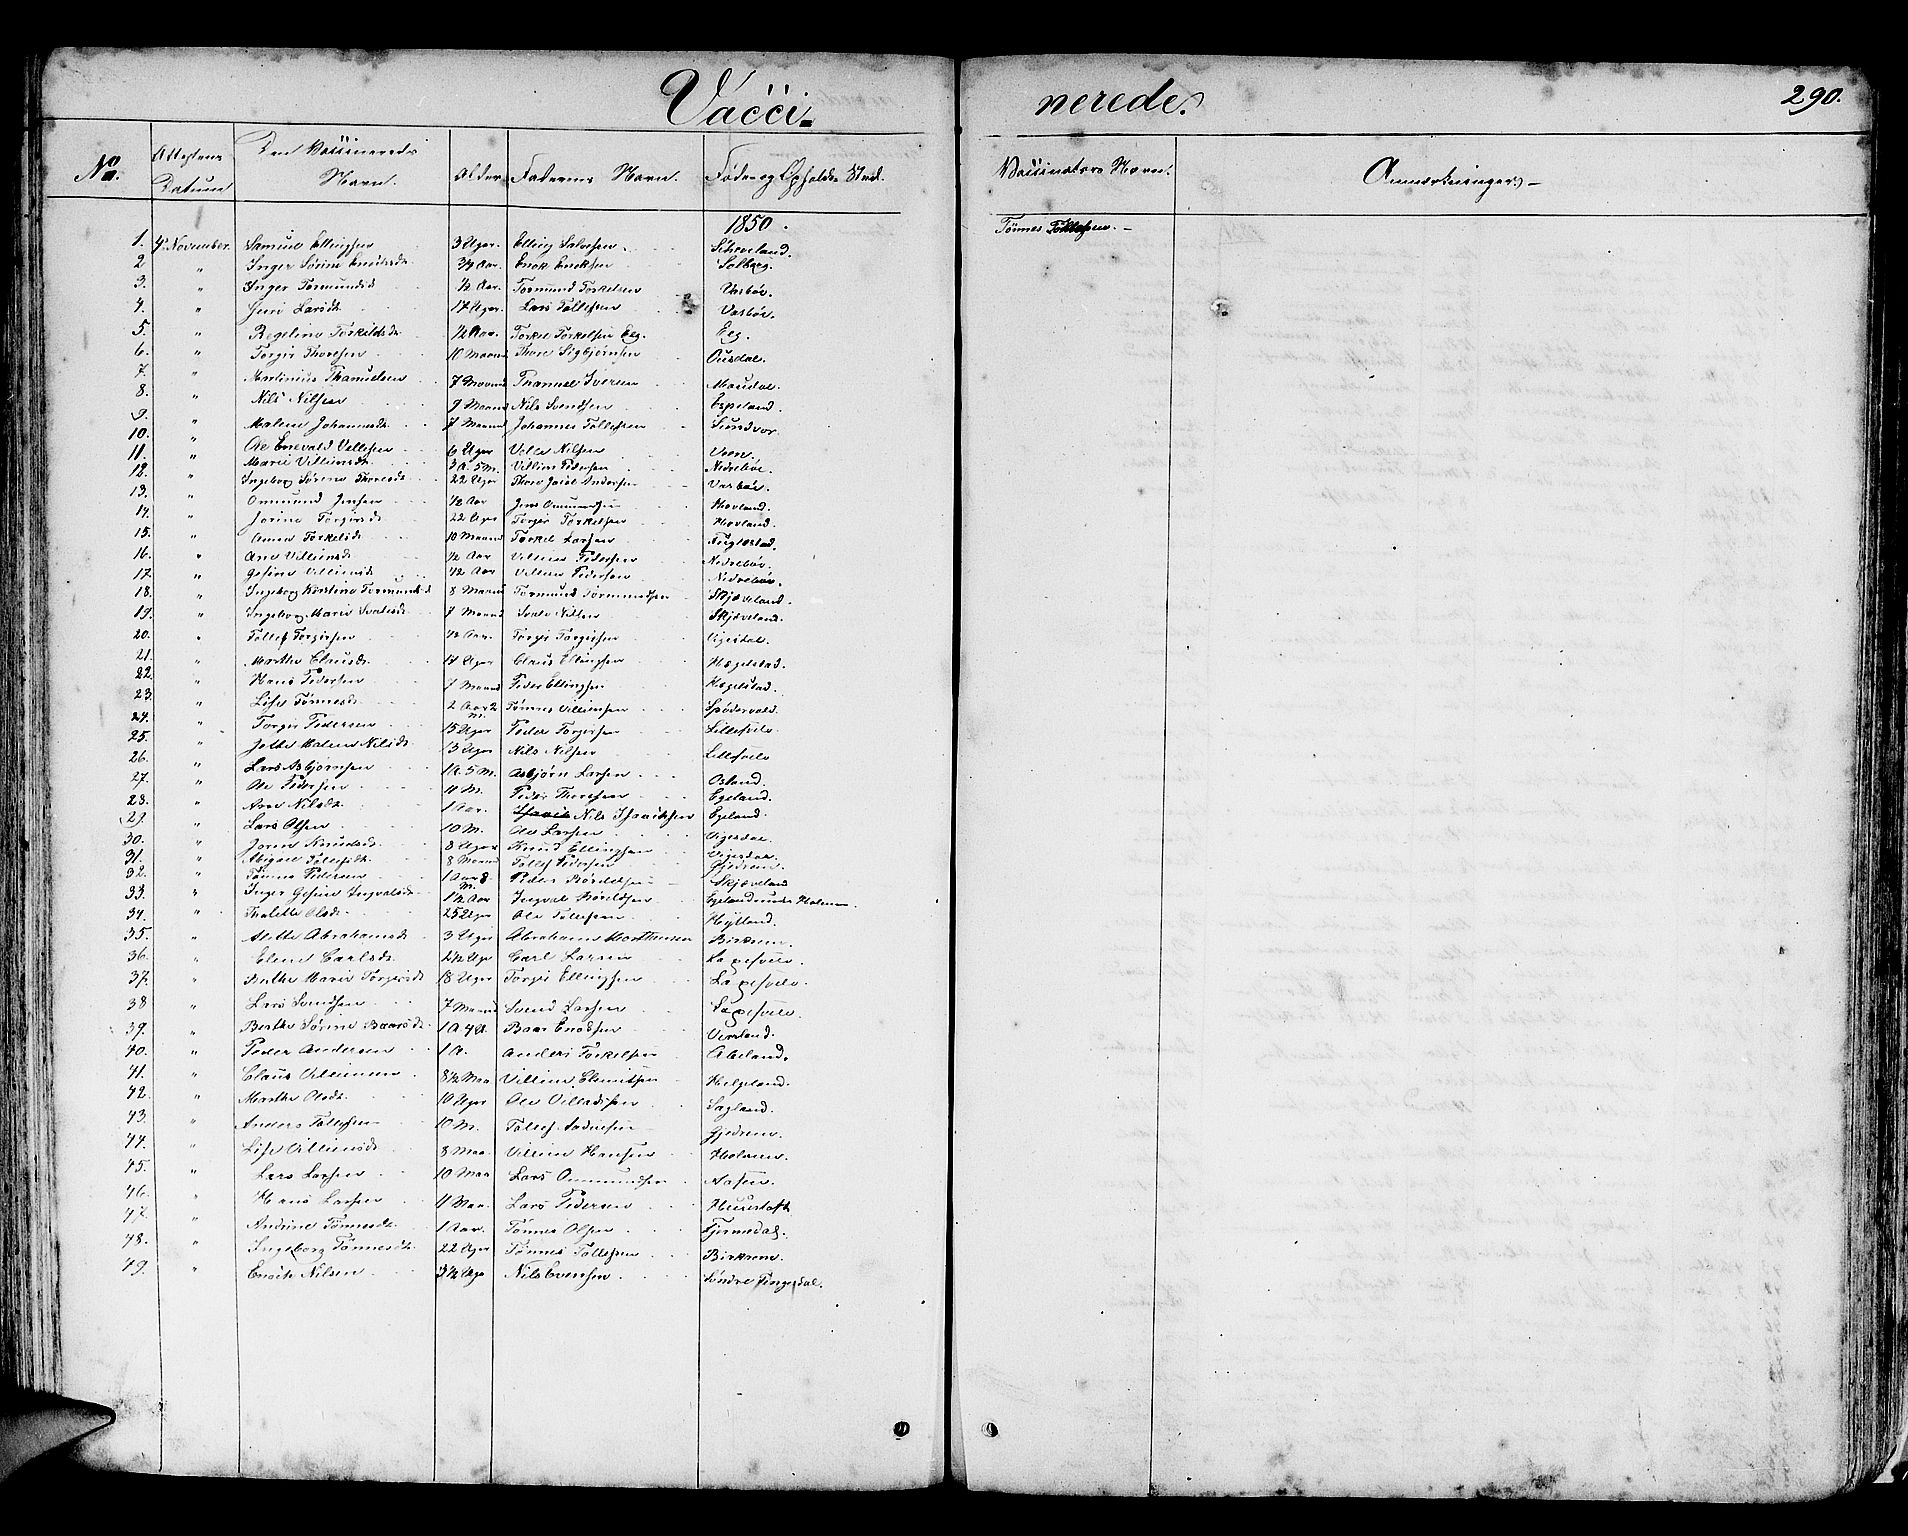 Vacci=
nerede.
290.
No. Attestens Datum Den Vaccineredes Navn. Alder Faderens Navn. Føde og Opholds Sted. Vaccinators Navn. Anmærkninger.
1850.
1. 4 November. Samuel Ellingsen 3 Uger. Elling Salvesen. Skeveland. Tønnes Tollefsen.
2 " Inger Sørine Enoksdt 3/4 Aar. Enok Enoksen Solberg.
3. " Inger Tormundsd ½ Aar. Tormund Torkelsen Vasbøe.
4. " Guri Larsdt 17 Uger. Lars Tollefsen Vasbøe.
5. " Regeline Torkildsdt ½ Aar. Torkel Torkelsen Eeg. Eeg.
6. " Torger Thoresen 10 Maaned Thore Sigbjørnsen Ousdal.
7. " Martinius Thamuelsen 7 Maaned Thamuel Iversen Maudal.
8. " Nils Nilsen 9 Maaned Nils Svendsen Espeland.
9. " Malene Johannesdt 7 Maaned Johannes Tollefsen Sundvor.
10. " Ole Enevald Vellesen 6 Uger Velle Nilsen Veen.
11. " Marie Villumsdt 3 A. 5 M. Villum Pedersen Nedrebøe.
12. " Ingeborg Sørine Thoresdt 22 Uger Thore Jacob Andersen Vasbøe.
13. " Ommund Jensen ½ Aar Jens Ommundsen Hovland.
14. " Jorine Torgersdt 22 Uger Torger Torkelsen Hovland.
15. " Anna Torkelsdt 10 Maaned Torkel Larsen Fuglestad.
16. " Ane Villumsdt ½ Aar Villum Pedersen Nedrebøe.
17. " Gesine Villumsdt ½ Aar Villum Pedersen Nedrebøe.
18. " Ingeborg Kirstine Tormundsd 8 Maaned Tormund Tormundsen Skjæveland.
19. " Ingeborg Marie Svalesdt 7 Maaned Svale Nilsen Skjæveland.
20. " Tollef Torgersen ½ Aar. Torger Torgersen Vigesdal.
21. " Marthe Clausdt 17 Uger Claus Ellingsen Hægelstad.
22. " Hans Pedersen 7 Maaned Peder Ellingsen Hægelstad.
23. " Lise Tønnesdt 2 Aar 2 M. Tønnes Villumsen Spødervold.
24. " Torger Pedersen 15 Uger Peder Torgersen Lillesvele
25. " Malene Nilsdt 13 Uger Nils Nilsen Lillesvele
26. " Lars Asbjørnsen 1 A. 5 M. Asbjørn Larsen Osland.
27. " Ole Pedersen 11 M. Peder Thoresen Egeland.
28. " Ane Nilsdt 1 Aar. Nils Isaacksen Egeland.
29. " Lars Olsen 10 M. Ole Larsen Vigesdal.
30. " Joren Knudsdt 8 Uger Knud Ellingsen Vigesdal.
31. " Abigael Tollefsdt 8 Maaned Tollef Pedersen Gjedrem.
32. " Tønnes Pedersen 1 Aar 8 M. Peder Bårdsen Skjæveland
33. " Inger Gesine Ingvalsdt 1½ Aar Ingval Bårdsen Egeland under Holmen.
34. " Thalette Olsdt 25 Uger Ole Tollefsen Høylland.
35. " Alette Abrahamsdt 3 Uger Abraham Mortensen Birkrem.
36. " Elene Carlsdt 2½ Uge Carl Larsen Lagesvele.
37. " Berthe Marie Torgersdt 18 Uger Torger Ellingsen Lagesvele.
38 " Lars Svendsen 7 Maaned Svend Larsen Lagesvele.
39. " Berthe Sørine Baarsdt 1 A 4 U. Baar Enoksen Vinland.
40. " Peder Andersen 1 A. Anders Torkelsen Abeland.
41. " Claus Villumsen 8½ Maa Villum Clemetsen Helgeland.
42. " Marthe Olsdt 10 Uger Ole Villadsen Sagland.
43. " Anders Tollefsen 10 M. Tollef Andersen Gjedrem.
44. " Lise Villumsdt 8 Maa. Villum Hansen Holmen.
45. " Lars Larsen 10 Maa Lars Ommundsen Aasen.
46. " Hans Larsen 11 Maa. Lars Pedersen Huustoft
47. " Andrine Tønnesdt 1 Aar. Tønnes Olsen Gjermdal.
48. " Ingeborg Tønnesdt 22 Uger Tønnes Tollefsen Birkrem.
49. " Enoch Nilsen 3½ Uge Nils Evensen Søndre Tingesdal.